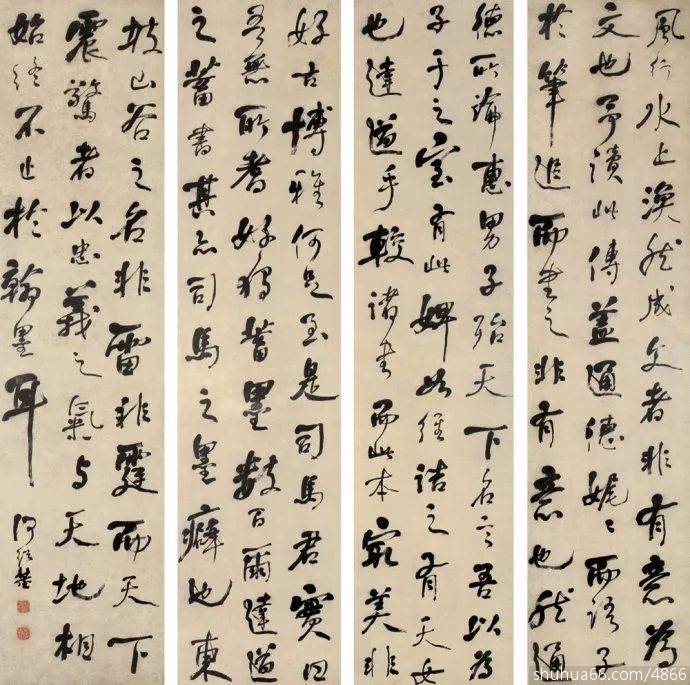 風行水上渙然成文者非有意為
文也予讀此傳蓋通德娓〻而語子
於筆追而書之非有意也然通
德所論惠男子殆天下名言吾以為
子于之室有此婢如維詰之有天女
也達道手較諸書而此本最美非
好古博雅何足至是司馬君實曰
吾無所嗜好獨蓄墨數百爾達道
之蓄書其亦司馬之墨癖也東
坡山谷之名非雷非霆而天下
震驚者以忠義之氣与天地相
始終不止於翰墨耳
何紹基
shuhua66.com/4866